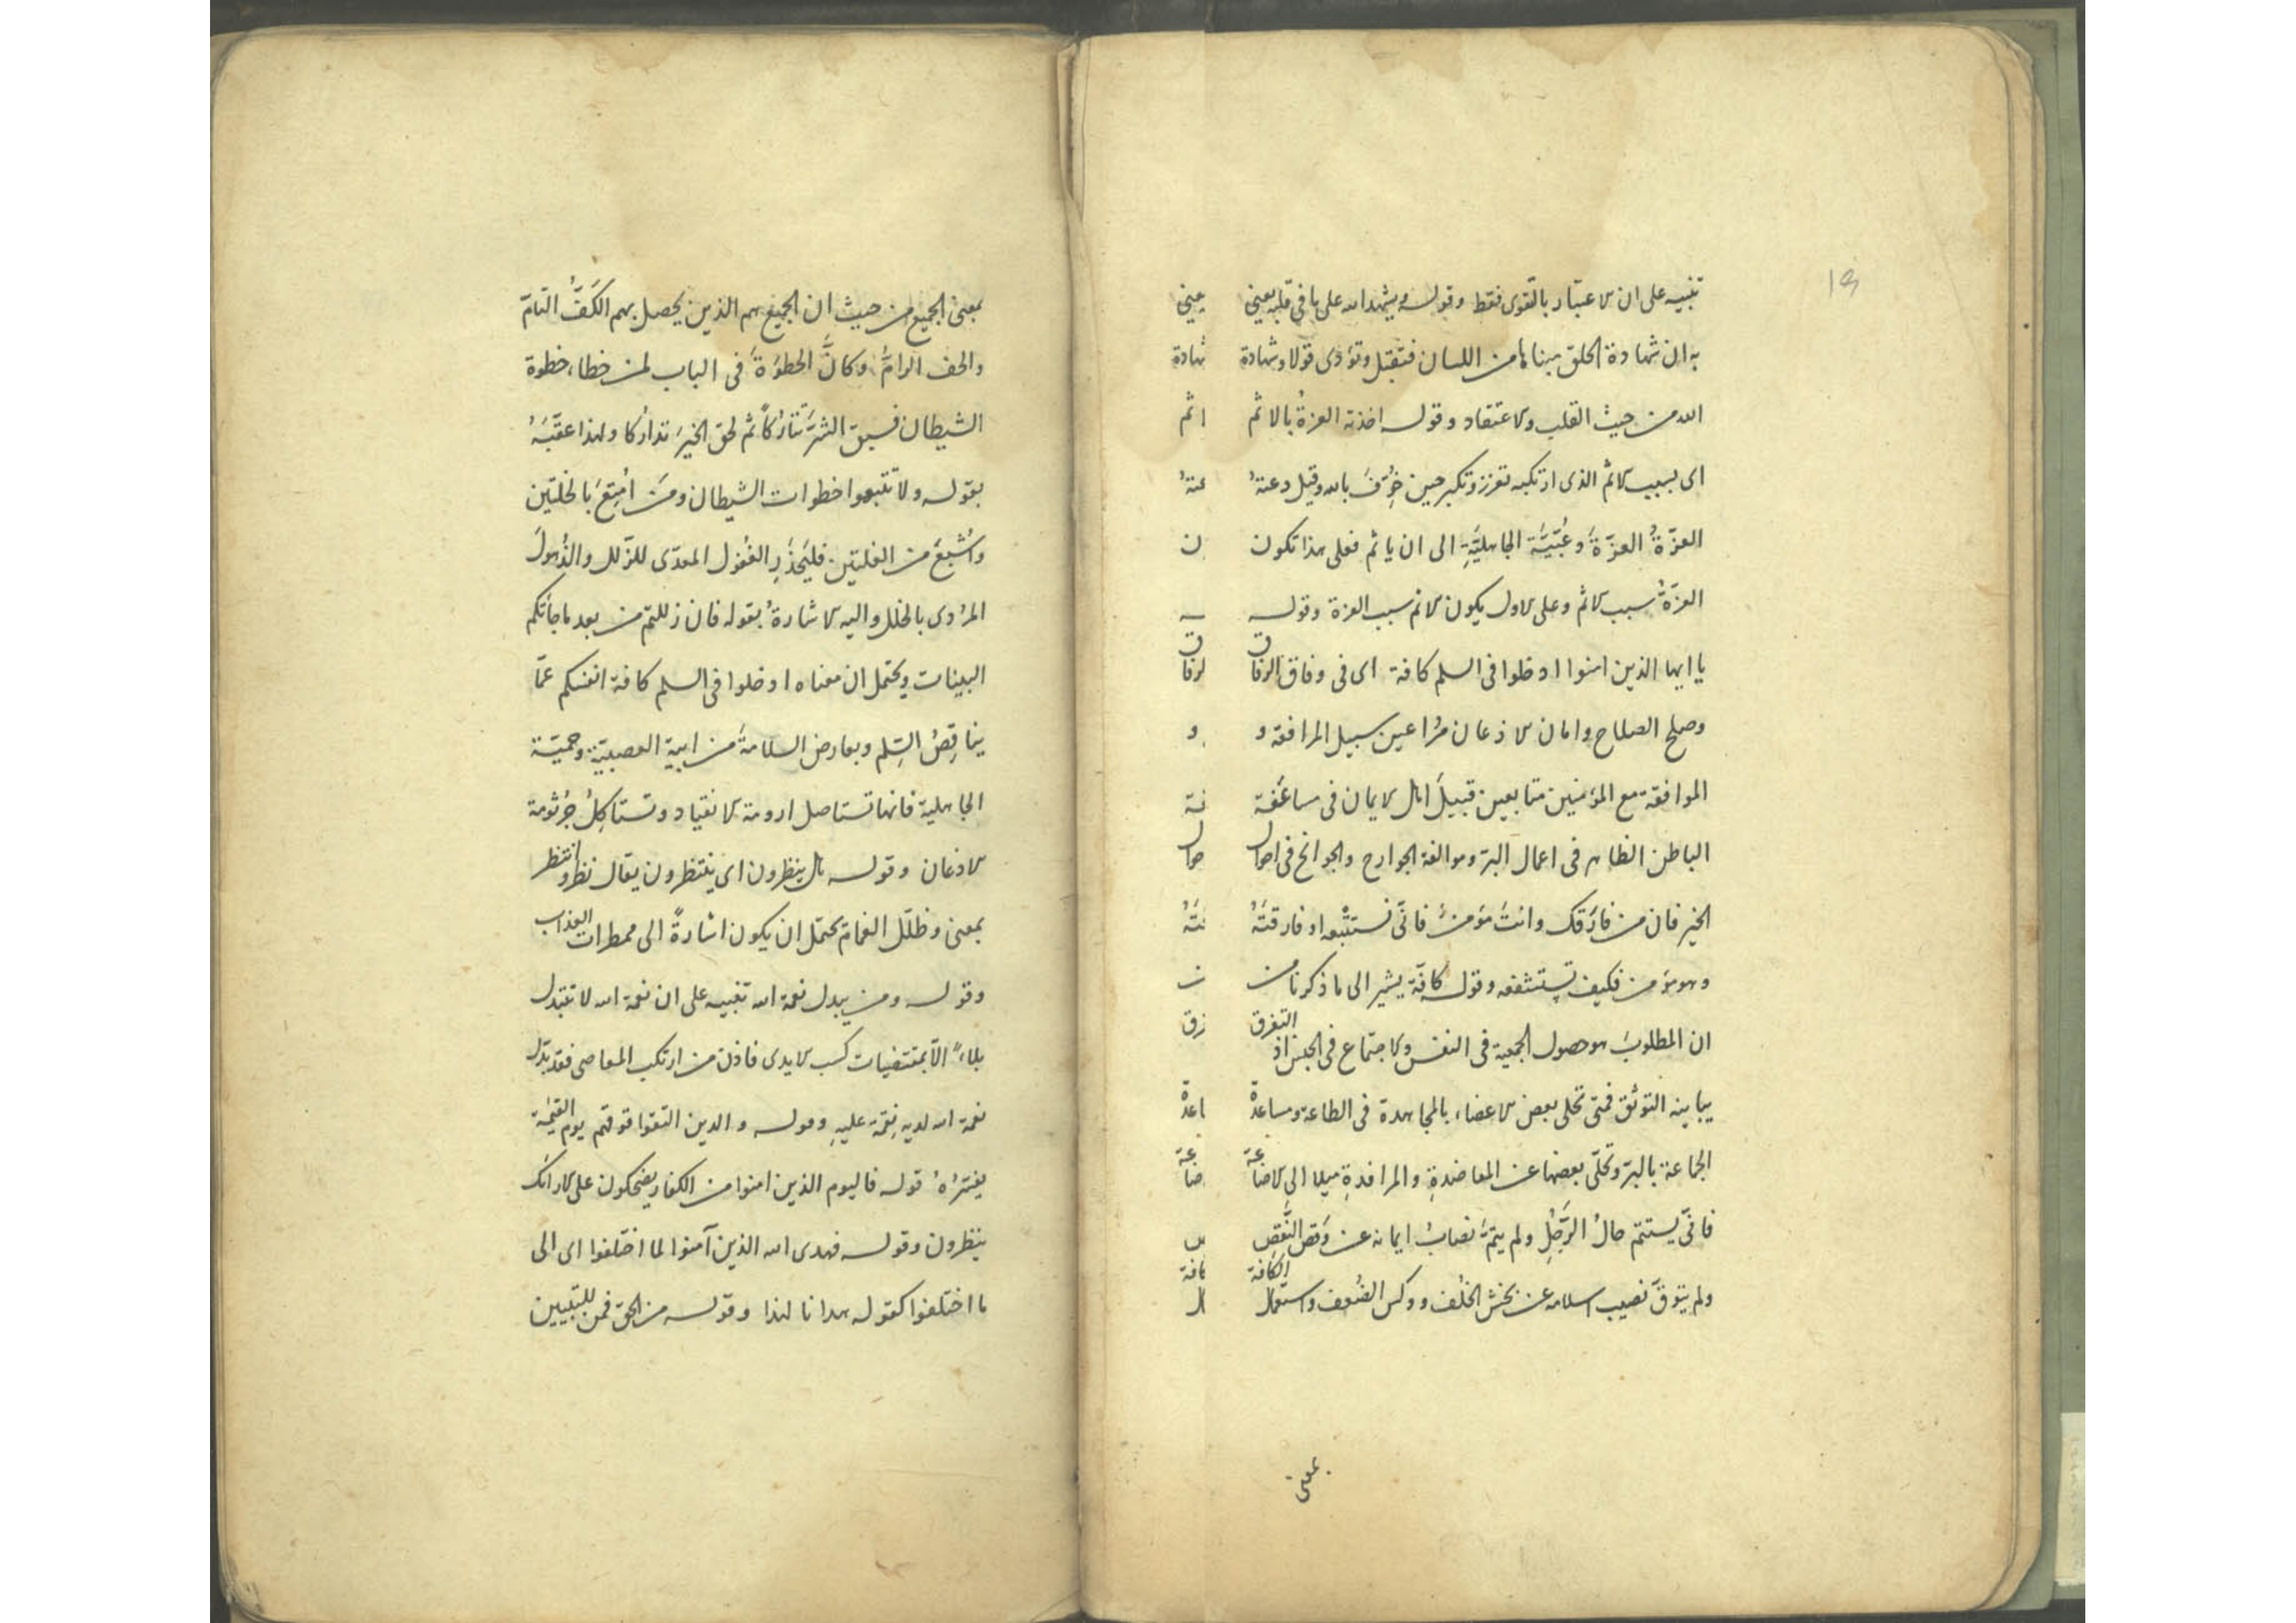 تنبيه على ان الاعتبار بالتقوى فقط وقوله ويشهد الله على ما فى قلبه يعنى
به ان شهادة الخلق مبناها من اللسان فتقبل وتؤدى قولا وشهادة
الله من حيث القلب والاعتقاد وقوله اخذته العزةُ بالاثم
اى بسبب الاثم الذى ارتكبه تعزز وتكبر حين خُوِّفَ بالله وقيل دعتهُ
العزّةُ العزّةَ وعُبِّيَّة الجاهليَّةِ الى ان ياثم فعلى هذا تكون
العزّةُ سبب الاثم وعلى الاول يكون الاثم سبب العزة وقوله
يا ايها الذين امنوا ادخلوا فى السلم كافة اى فى وفاق الرفاق
وصلح الصلاح وامان الاذعان مُراعين سبيل المرافقة و
الموافقة مع المؤمنين متابعين قبيلَ اهل الايمان فى مساعَفة
الباطن الظاهر فى اعمال البرّ وموالفة الجوارح والجوانح فى احوال
الخير فان من فارَقك وانتَ مؤمنٌ فانّى تستتْبعه او فارقتَهُ
وهو مؤمن فكيف تستشفعه وقوله كافّة يشير الى ما ذكرنا من
ان المطلوبَ هو حصول الجمعية فى النفس والاجتماع فى الجنس اذ التفرق
يباينه التوثق فمتى تحلى بعض الاعضاء بالمجاهدة فى الطاعة ومساعدة
الجماعة بالبرّ وتخلّى بعضها عن المعاضدةِ والمرافدةِ ميلا الى الاضاعة
فانّى يستتم حالُ الرَّجُلِ ولم يتمَّ نصابُ ايمانه عن وَقص النَّقص
ولم يتوقَّ نصيب اسلامه عن بخش الخلف ووكس الضُعف واستعمال الكافة
بمعنى
بمعنى الجميع من حيث ان الجميع هم الذين يحصل بهم الكَفُّ التامّ
والحف الرامُّ وكانَّ الخطوَةَ فى الباب لمن خطاء خطوة
الشيطان فسبق الشرَّ تتارُكاً ثم لحق الخيرَ تدارُكا ولهذا عقّبَهُ
بقوله ولا تتبعوا خطوات الشيطان ومَن امتِعَ بالخلتين
واُشبِعَ من الغلتين فليَحذَرِ الغفول المعدّى للزّلل والذُهولَ
المؤدى بالخلل واليه الاشارةُ بقوله فان زللتم من بعد ما جأتكم
البينات ويحتمل ان معناه ادخلوا فى السلم كافة انفسكم عمّا
يناقِضُ السِّلم ويعارض السلامةَ من ابية العصبيّة وحميّة
الجاهلية فانها تستاصل ارومة الانقياد وتستاكِلُ جُرثومة
الاذعان وقوله هل ينظرون اى ينتظرون يقال نظر وانتظر
بمعنى وظلَل الغمام يحتمل ان يكون اشارةً الى ممطرات العذاب
وقوله ومن يبدل نعمة الله تنبيه على ان نعمة الله لا تتبدل
بلاءً الاّ بمقتضيات كسب الايدى فاذن من ارتكب المعاصى فقد بدّل
نعمة الله لديه نِقمة عليهِ وقوله والذين اتقوا فوقهم يوم القيٰمة
يفسّرُهُ قوله فاليوم الذين امنوا من الكفار يضحكون على الارائك
ينظرون وقوله فهدى الله الذين آمنوا لما اختلفوا اى الى
ما اختلفوا كقوله هدانا لهذا وقوله من الحق فمن للتبيين